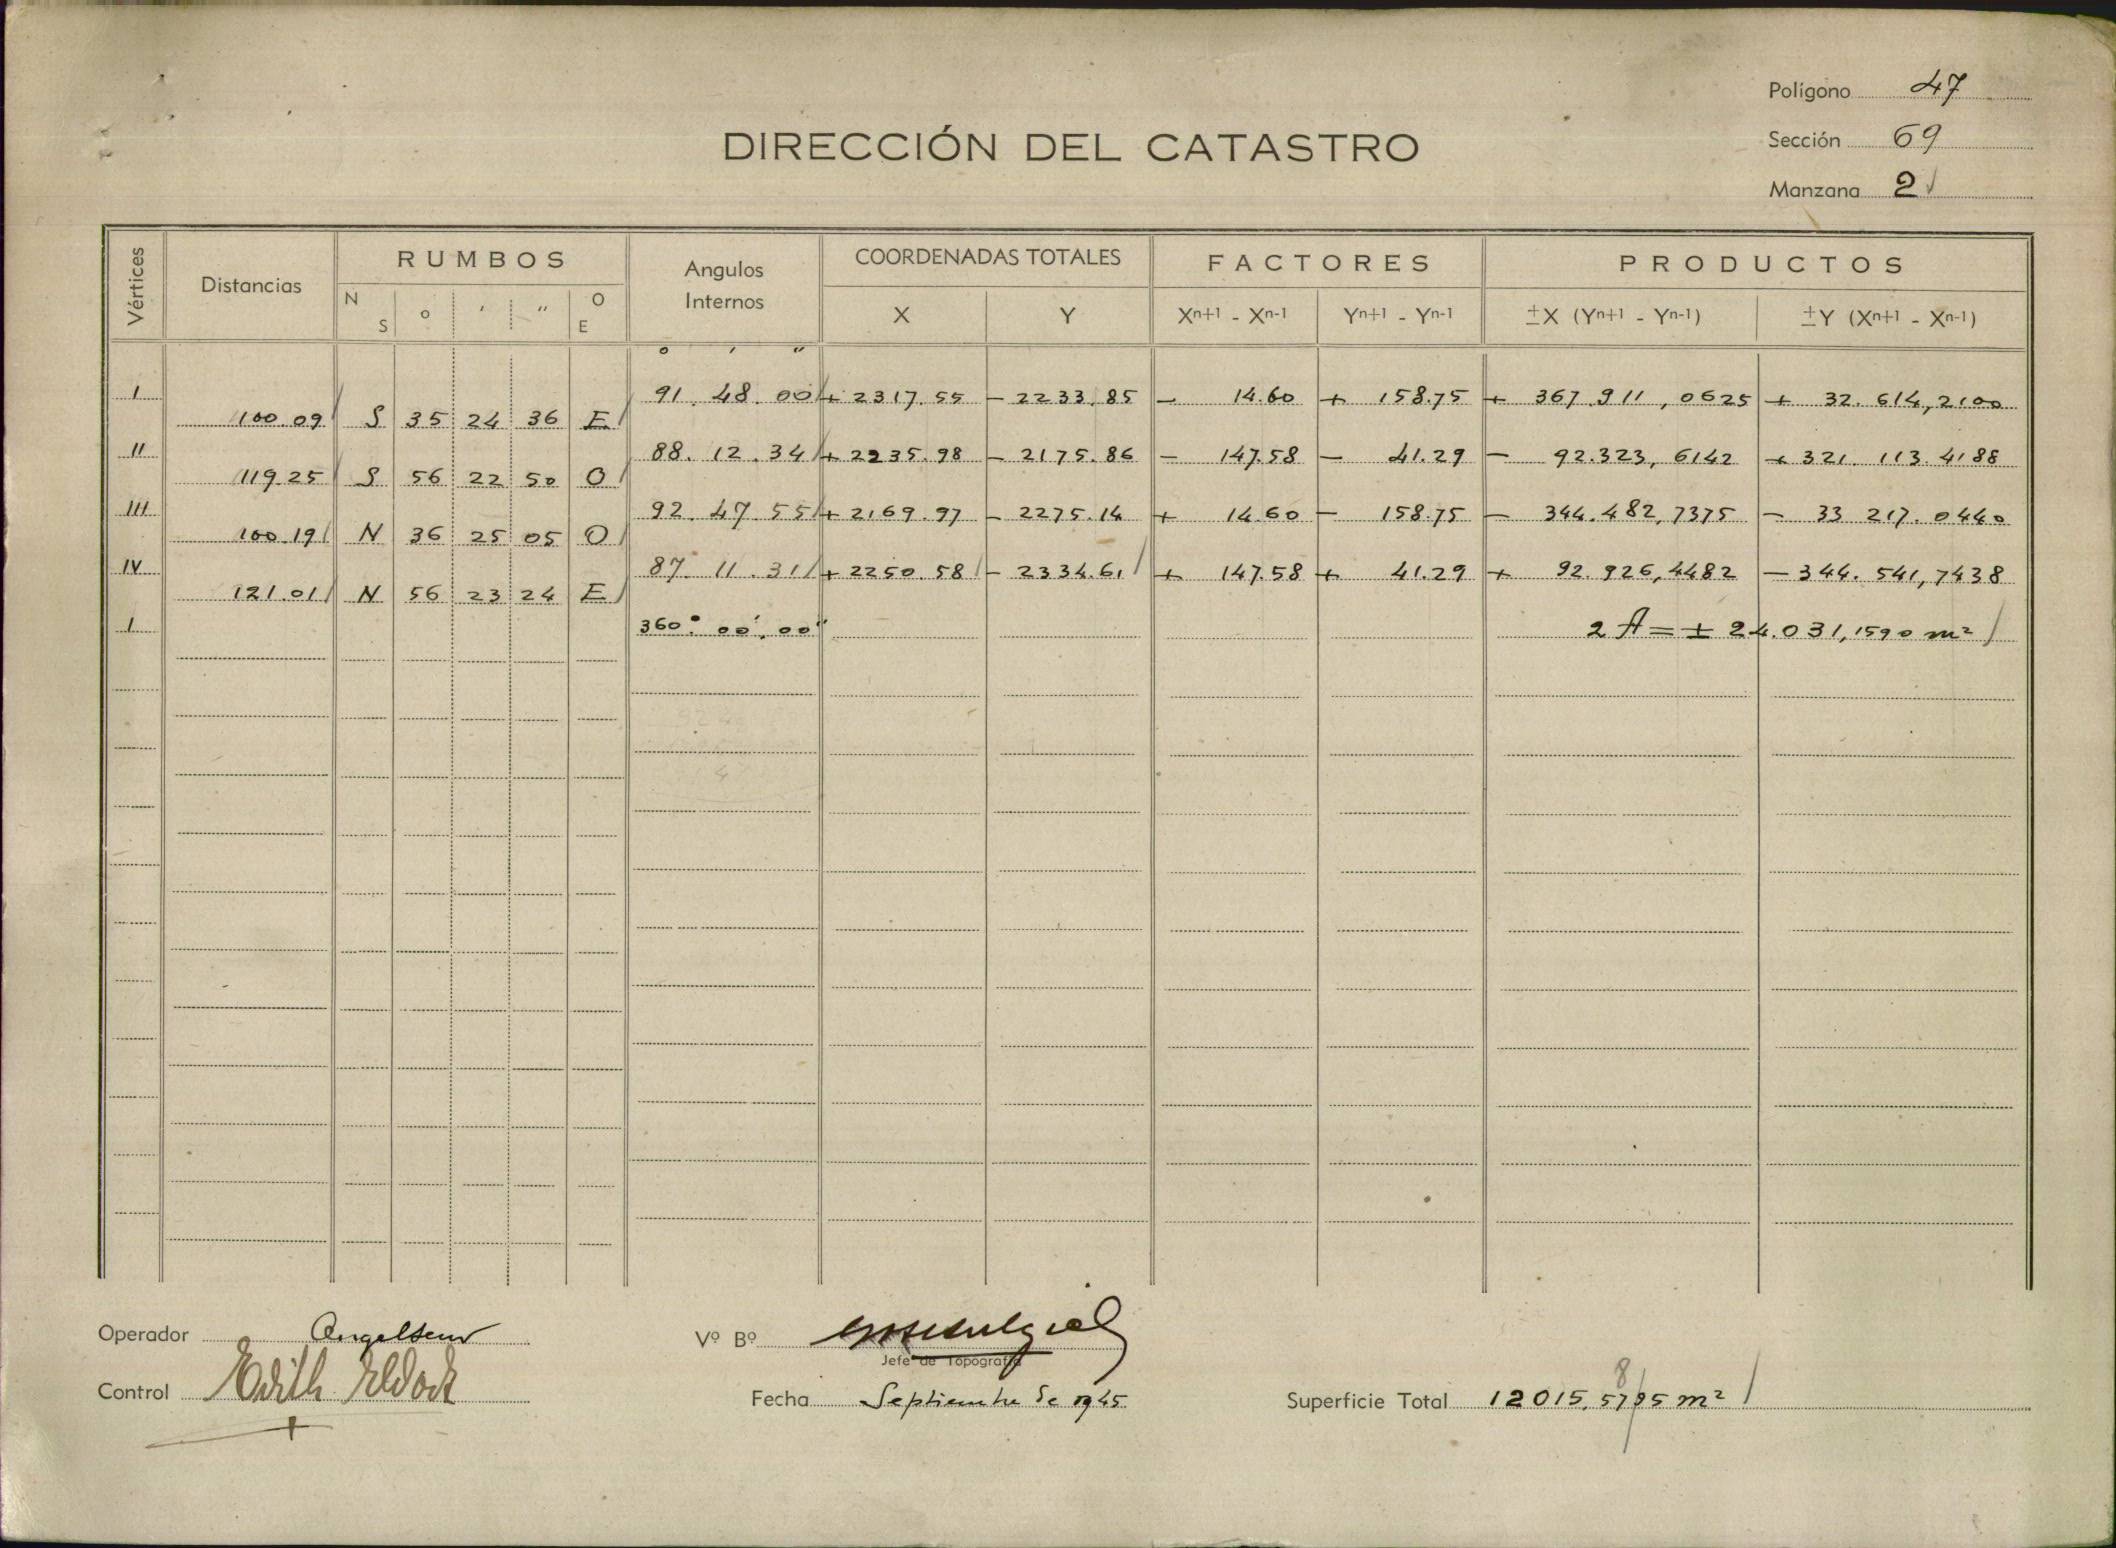 Polígono 47
DIRECCIÓN DEL CATASTRO
Sección 69
Manzana 2
Vértices Distancias RUMBOS Angulos Internos COORDENADAS TOTALES FACTORES PRODUCTOS
N S ° ′ ″ O E X Y Xn+1 - Xn-1 Yn+1 - Yn-1 ±X (Yn+1 - Yn-1) ±Y (Xn+1 - Xn-1)
° ′ ″
I 91. 48. 00 + 2317.55 - 2233.85 - 14.60 + 158.75 + 367.911,0625 + 32.614,2100
100.09 S 35 24 36 E
II 88. 12. 34 + 2235.98 - 2175.86 - 147.58 - 41.29 - 92.323,6142 + 321.113.4188
119.25 S 56 22 50 O
III 92. 47. 55 + 2169.97 - 2275.14 + 14.60 - 158.75 - 344.482,7375 - 33 217.0440
100.19 N 36 25 05 O
IV 87. 11. 31 + 2250.58 - 2334.61 + 147.58 + 41.29 + 92.926,4482 - 344.541,7438
121.01 N 56 23 24 E
I 360°. 00′. 00″ 2A = ± 24.031,1590 m²
Operador
Vº Bº
Jefe de Topografía
Control Edith
Fecha Septiembre de 1945
8
Superficie Total 12015,5795 m²